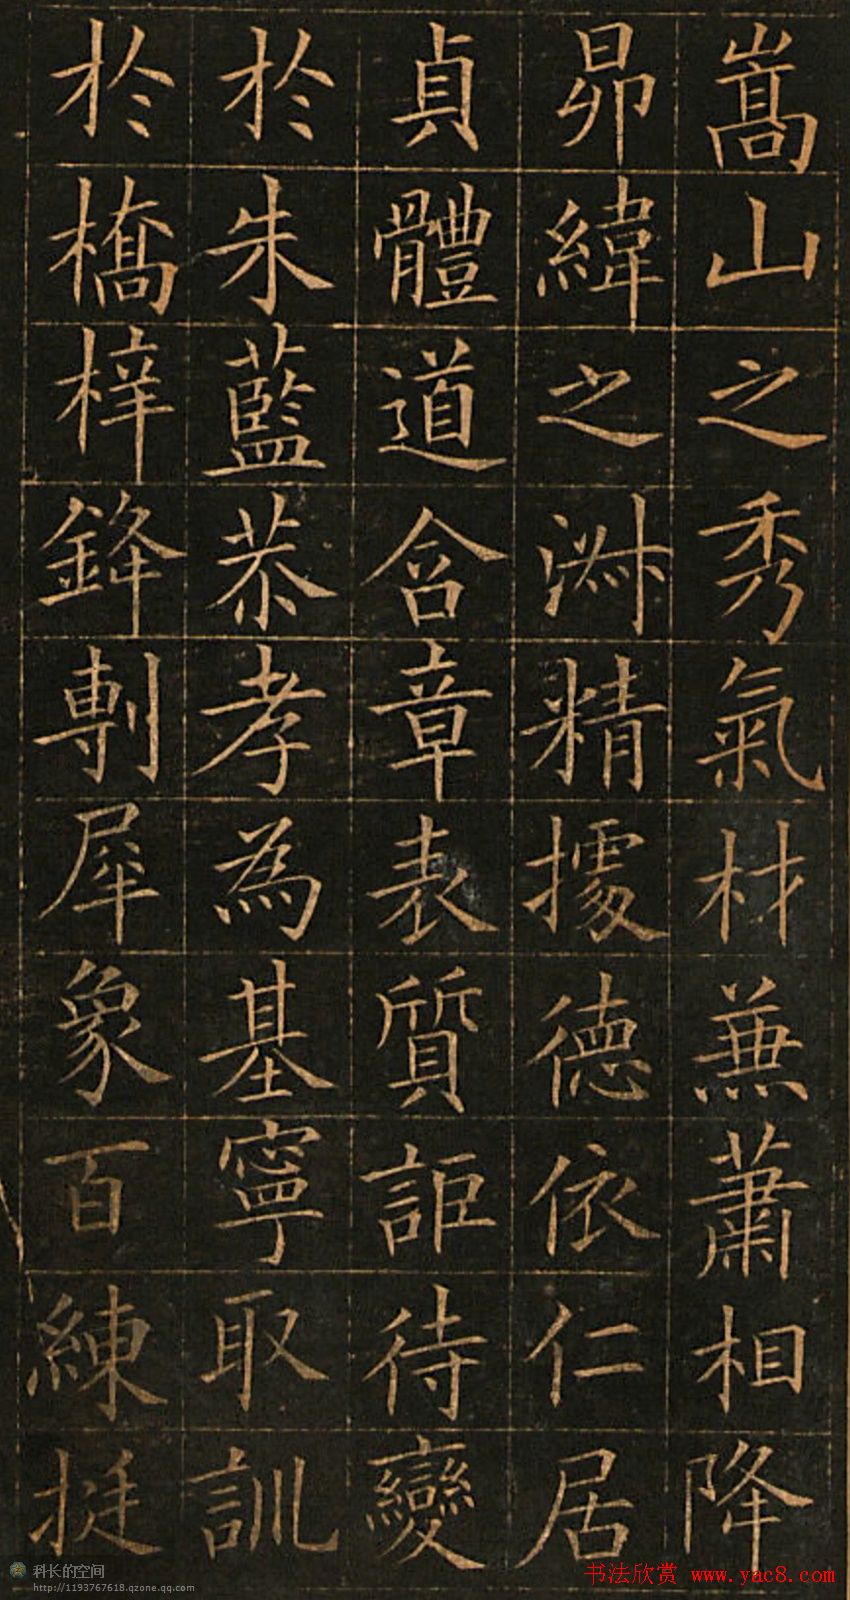 嵩山之秀氣材兼蕭相降
昴緯之淋精據德依仁居
貞體道含章表質詎待變
於朱藍恭孝為基寧取訓
於橋梓鋒剸犀象百練挺
科长的空间
http://1193767618.qzone.qq.com
书法欣赏 www.yac8.com